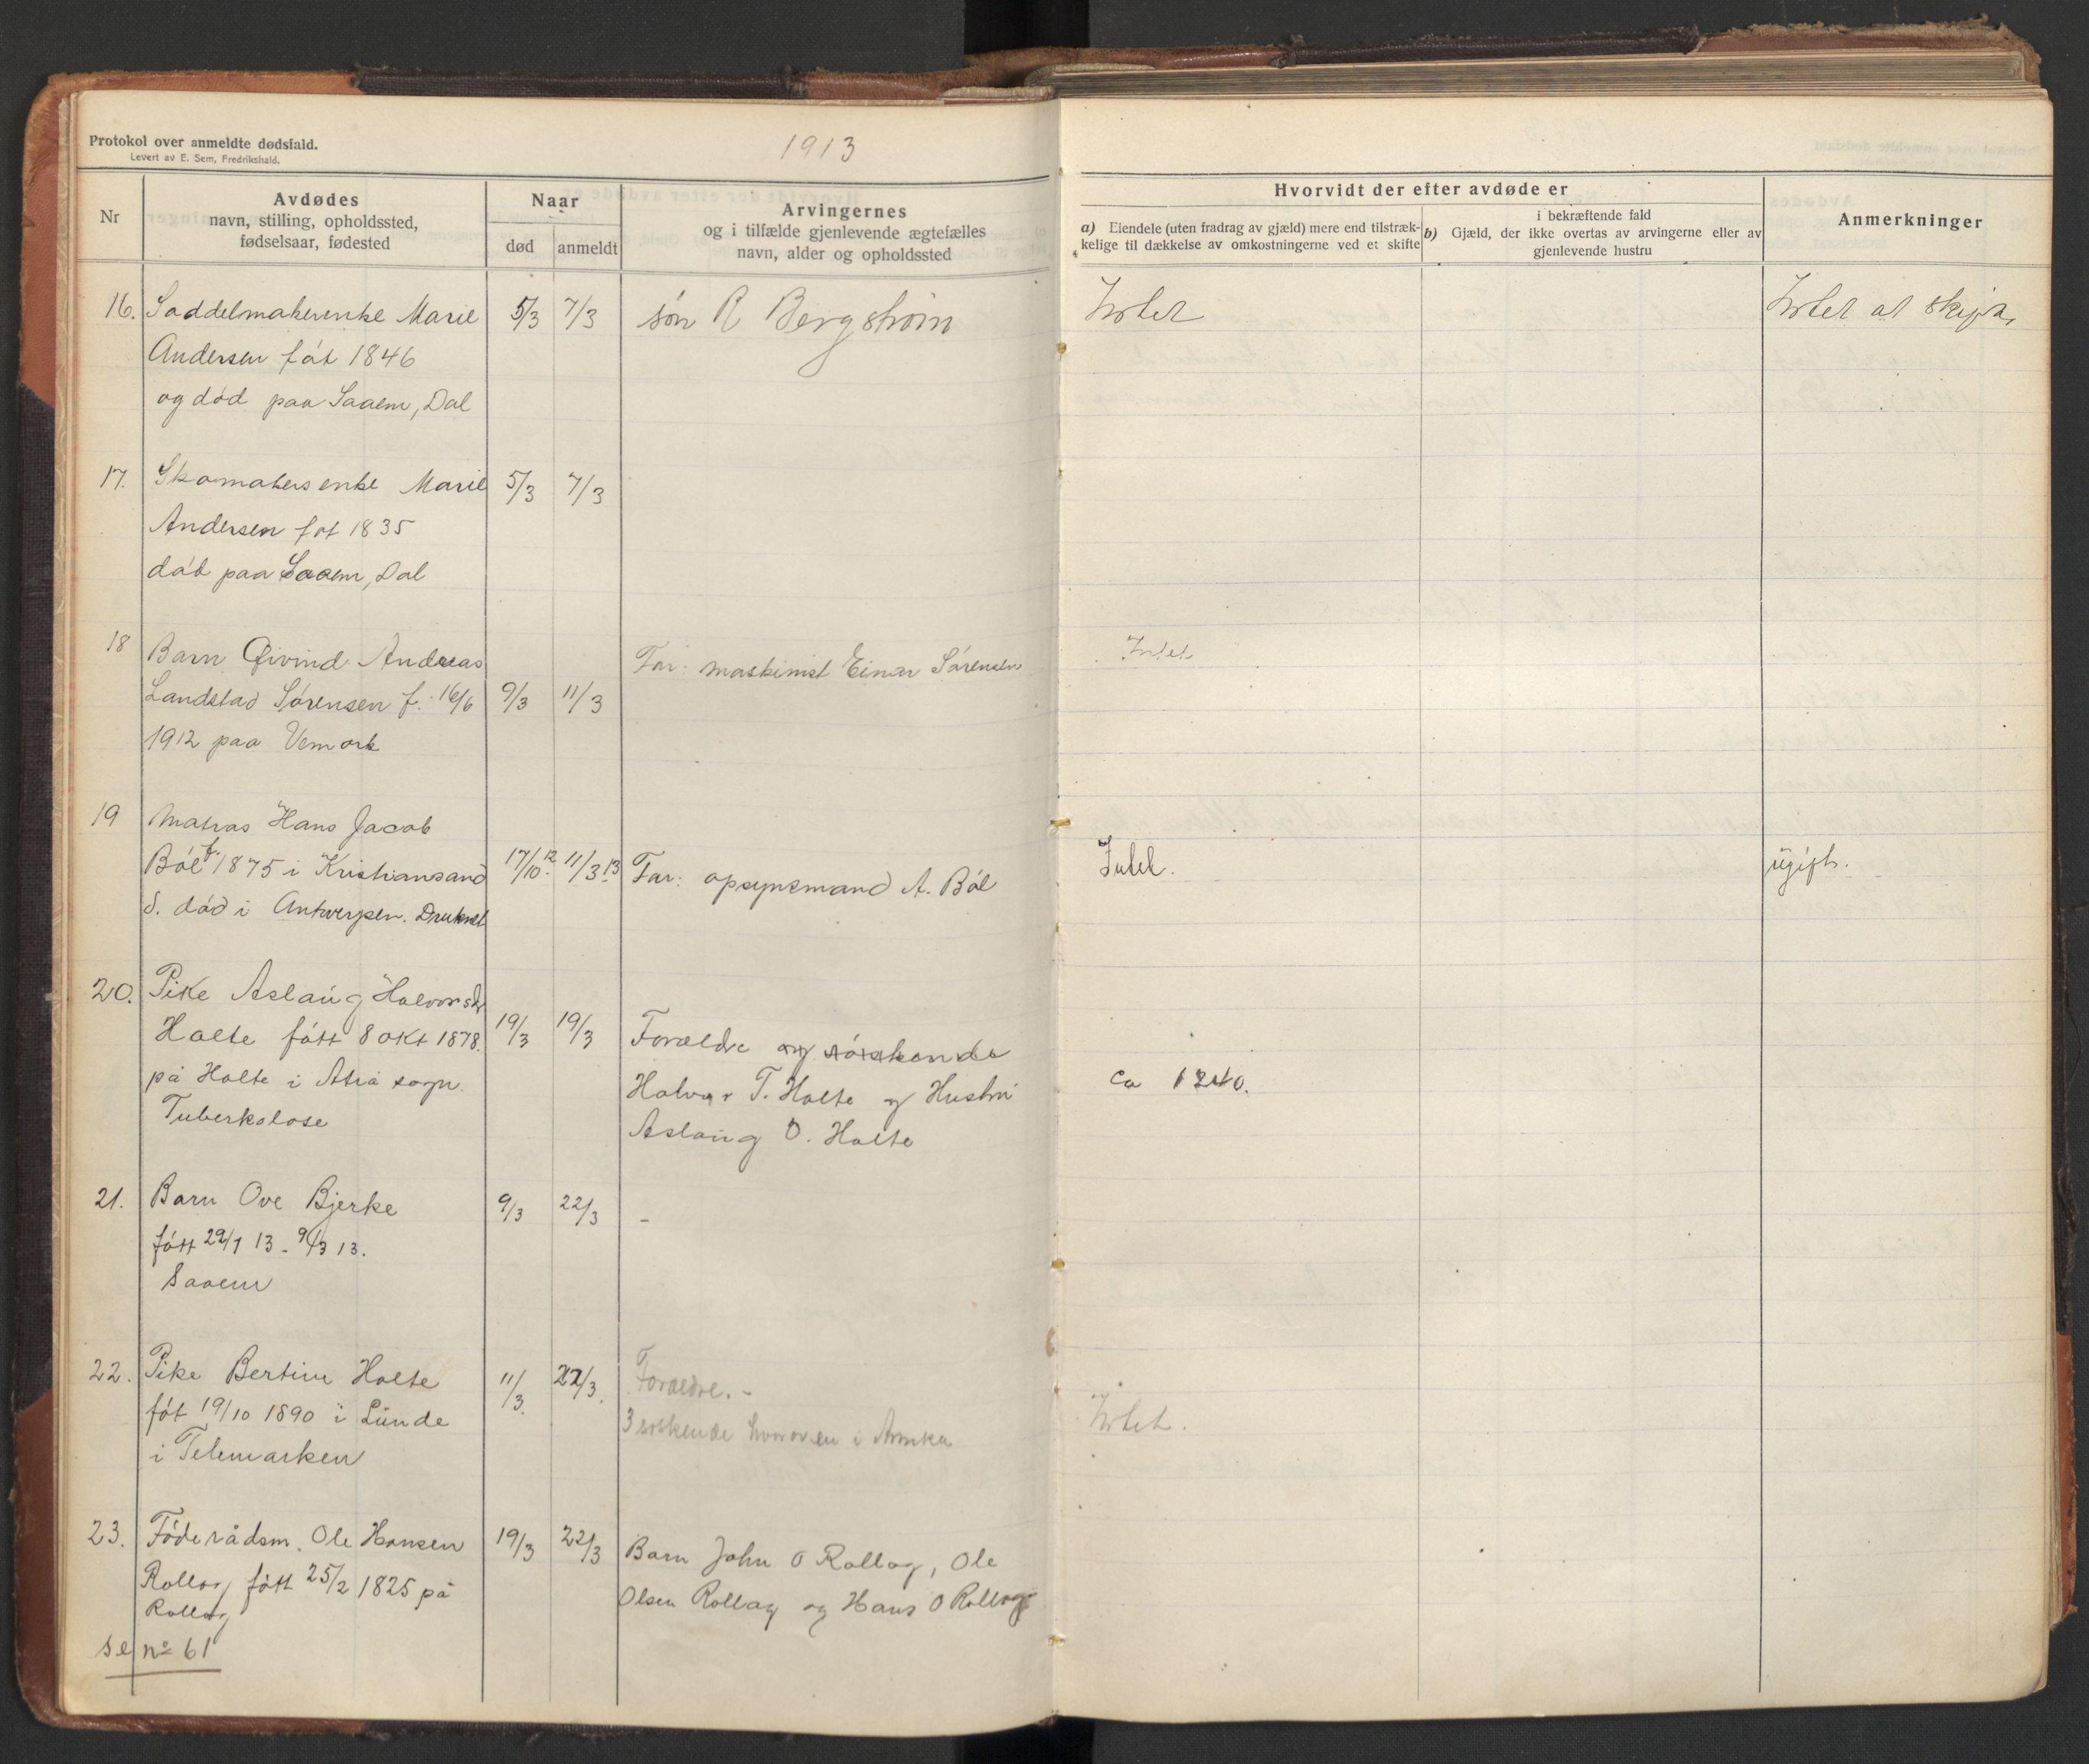 Protokol over anmeldte dødsfald.
Levert av E. Sem, Fredrikshald.
1913
Nr
Avdødes
navn, stilling, opholdssted,
fødselsaar, fødested
Naar
død
anmeldt
Arvingernes
og i tilfælde gjenlevende ægtefælles
navn, alder og opholdssted
Hvorvidt der efter avdøde er
a) Eiendele (uten fradrag av gjæld) mere end tilstræk-
kelige til dækkelse av omkostningerne ved et skifte
i bekræftende fald
b) Gjæld, der ikke overtas av arvingerne eller av
gjenlevende hustru
Anmerkninger
16. Saddelmakerenke Marie 5/3 7/3 søn R Bergstrøm Intet Intet at skifte
Andersen føt 1846
og død paa Saaem, Dal
17. Skomakersenke Marie 5/3 7/3
Andersen føt 1835
død paa Saaem, Dal
18 Barn Øivind Andreas Far: maskinist Einar Sørensen Intet
Landstad Sørensen f. 16/6 9/3 11/3
1912 paa Vemork
19 Matros Hans Jacob
Böe f. 1875 i Kristiansand 17/10 12 11/3 13 Far: opsynsmand A. Böe Intet. ugift.
S. död i Antwerpen. Druknet
20. Pike Aslaug Halvorsdr
Holte født 8 okt 1878. 19/3 19/3 Forældre og søskende
på Holte i Atrå sogn. Halvor T. Holte og Hustru ca 1240.
Tuberkolose Aslaug O. Holte
21. Barn Ove Bjerke 9/3 22/3 -
født 29/1 13 - 9/3 13.
Saaem
22. Pike Bertine Holte 11/3 22/3. Forældre. -
føt 19/10 1890 i Lunde 3 søskende hvorav en i Amrka Intet.
i Telemarken
23. Føderådsm. Ole Hansen 19/3 22/3 Barn John O Rollag, Ole
Rollag født 25/2 1825 på Olsen Rollag og Hans O Rollag
Rollag
se no 61